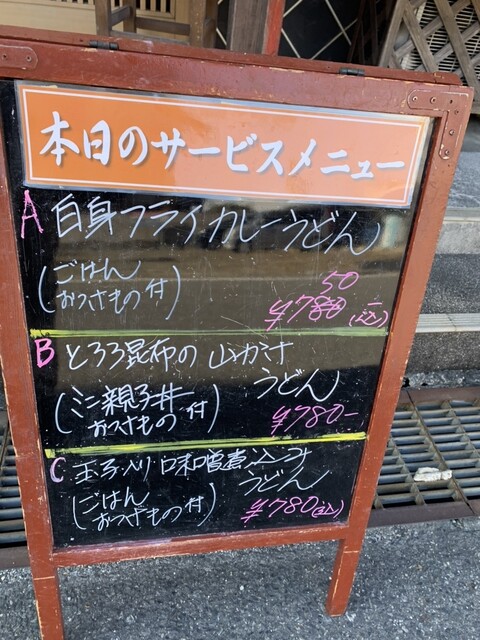 本日のサービスメニュー
A 白身フライカレーうどん
(ごはん
おつけもの 付)
50
¥780- (込)
B とろろ昆布の山かけ
うどん
(ミニ親子丼
おつけもの 付)
¥780-
C 玉子入り 味噌煮込み
うどん
(ごはん
おつけもの 付)
¥780(込)